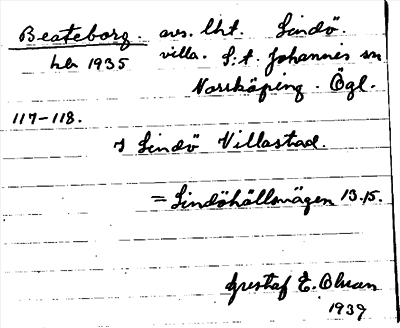 Beateborg. avs. lht. Lindö.
hb 1935 villa. S:t Johannes sn
Norrköping. Ögl.
117-118.
i Lindö Villastad.
= Lindöhällsvägen 13.15.
Gustaf E. Olsson
1939